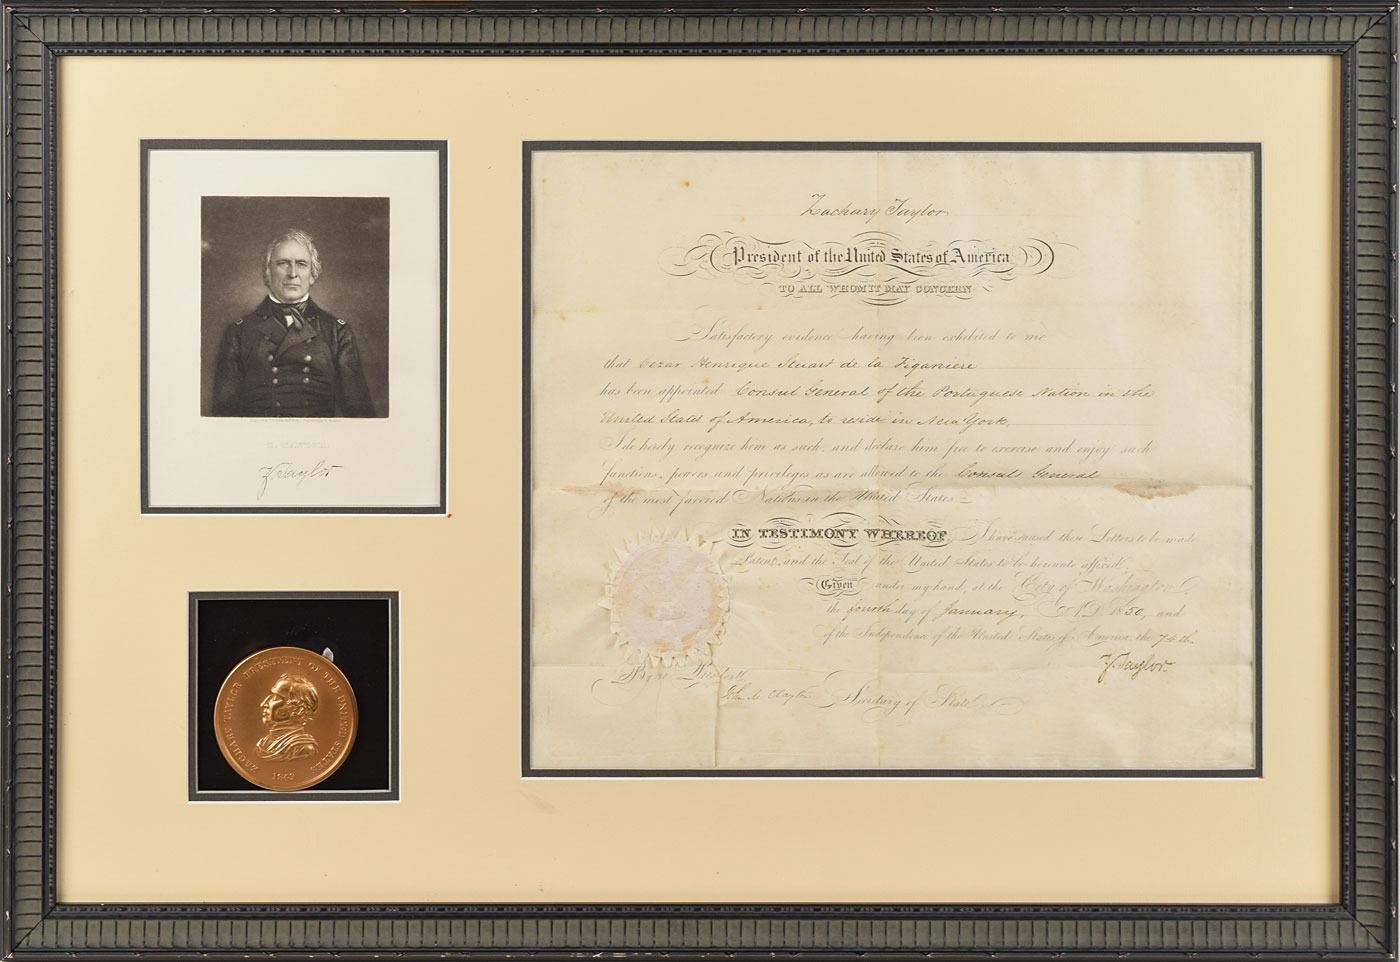 Z. TAYLOR.
Z. Taylor
ZACHARY TAYLOR PRESIDENT OF THE UNITED STATES
1849
Zachary Taylor
President of the United States of America
TO ALL WHOM IT MAY CONCERN
Satisfactory evidence having been exhibited to me
that Cezar Henrique Stuart de la Figaniere
has been appointed Consul General of the Portuguese Nation in the
United States of America, to reside in New York.
I do hereby recognize him as such, and declare him free to exercise and enjoy such
functions, powers and privileges as are allowed to the Consuls General
of the most favored Nations in the United States.
IN TESTIMONY WHEREOF, I have caused these Letters to be made
Patent, and the Seal of the United States to be hereunto affixed.
Given under my hand, at the City of Washington
the fourth day of January, A.D. 1850, and
of the Independence of the United States of America, the 74th.
Z. Taylor
By the President
John M. Clayton Secretary of State